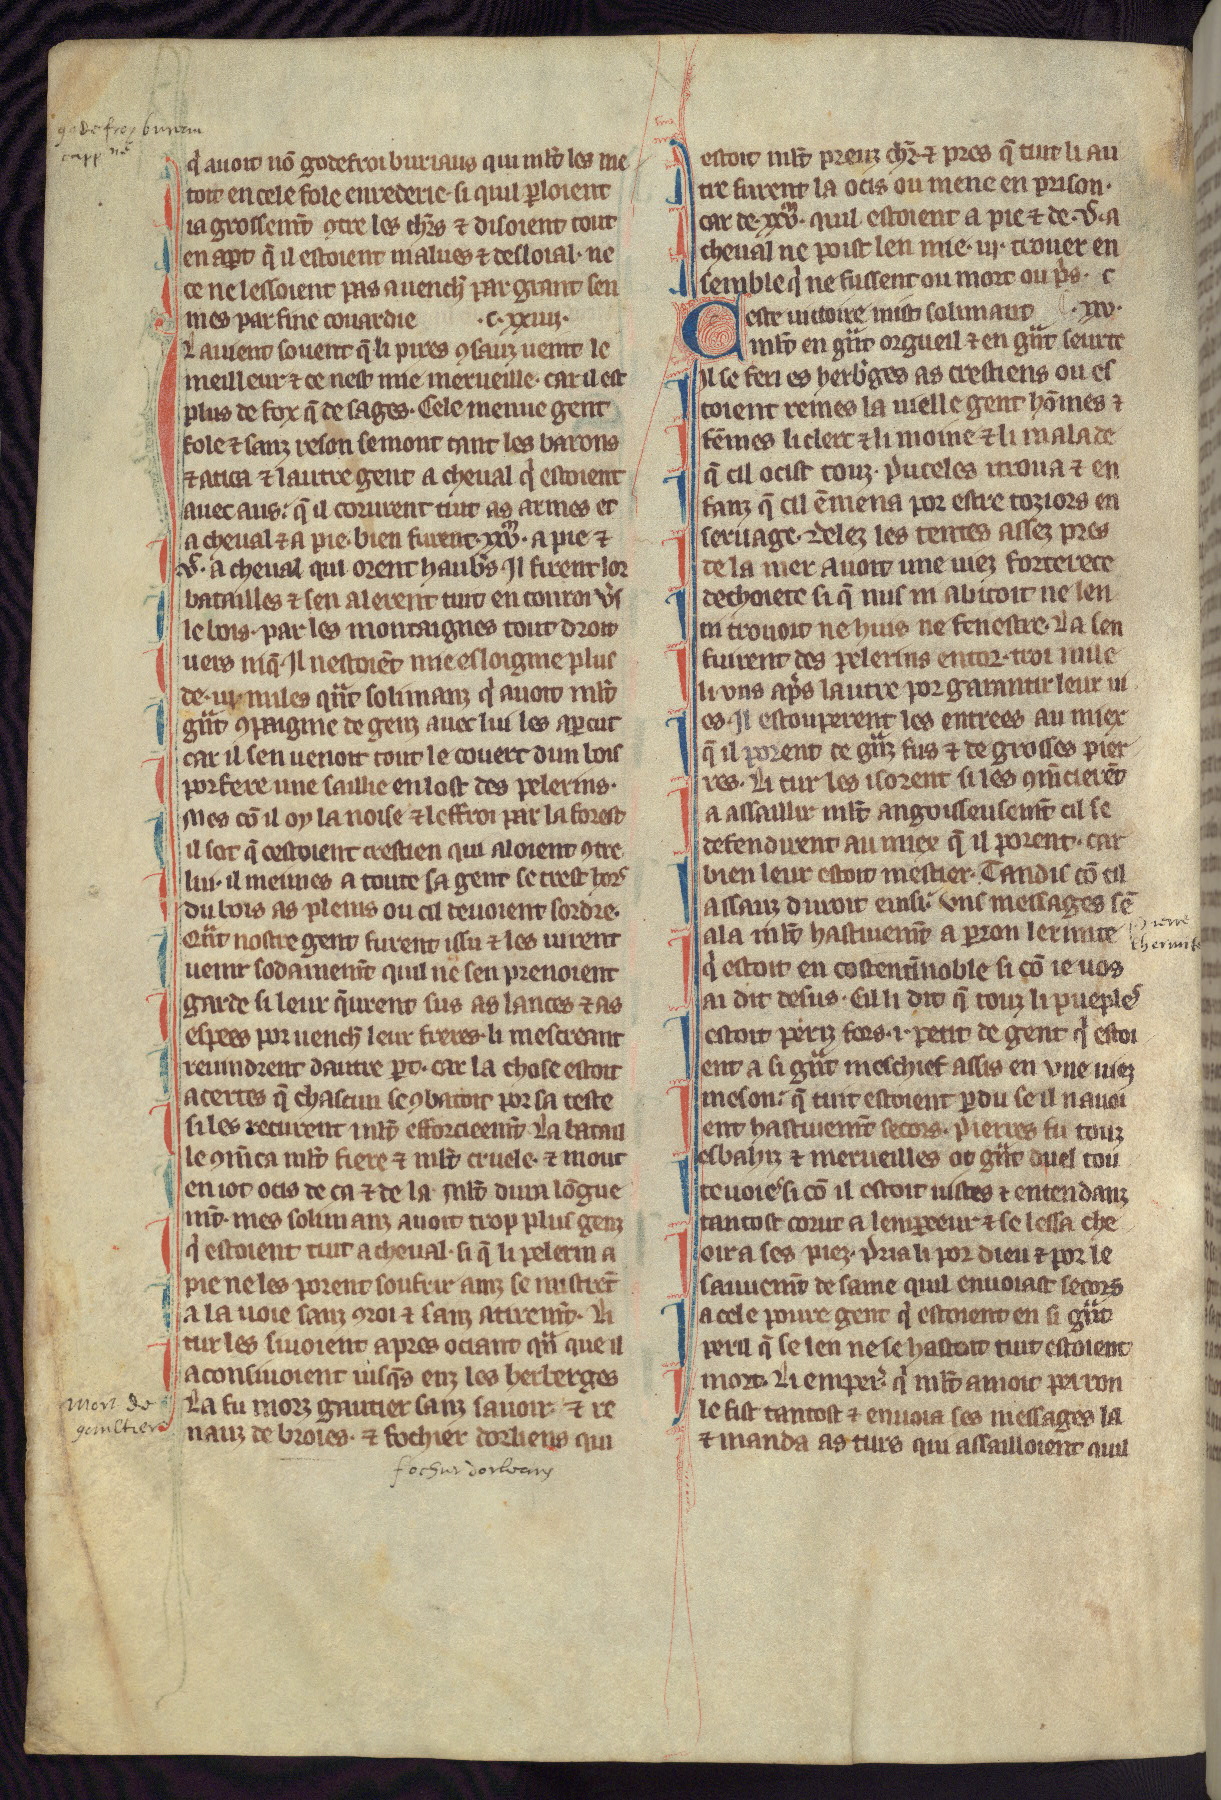 godefroy buriau
capp ne
q̓ auoit nō godefroi buriaus qui ml̄t les me
toit en cele fole enrederie· si quil ꝑloient
ia grossemt̄ ꝯtre les chr̄s ⁊ disoient tout
en apt̄ q̄ il estoient malues ⁊ desloial· ne
ce ne lessoient pas a uench̄ par grant sen
mes par fine couardie ·c· xxiiij·
L auient souent q̄ li pires ꝯsauz ueint le
meilleur ⁊ ce nest mie merueille· car il est
plus de fox q̄ de sages· Cele menue gent
fole ⁊ sanz reson semont tant les barons
⁊ atica ⁊ lautre gent a cheual q̓ estoient
auec aus: q̄ il corurent tuit as armes et
a cheual ⁊ a pie· bien furent· xxvᵐ· a pie ⁊
vᶜ· a cheual qui orent haub̄s· Il firent lor
batailles ⁊ sen alerent tuit en conroi v̄s
le bois· par les montaignes tout droit
uers niq̄· Il nestoiēt mie esloignie plus
de· iij· miles qn̄t solimanz q̓ auoit ml̄t
gn̄t ꝯpaignie de genz auec lui les aꝑcut
car il sen uenoit tout le couert dun bois
por fere une saillie en lost des pelerins·
Mes cō il oy la noise ⁊ leffroi par la forest
il sot q̄ cestoient crestien qui aloient ꝯtre
lui· il meimes a toute sa gent se trest hors
du bois as pleins ou cil deuoient sordre·
Qn̄t nostre gent furent issu ⁊ les uirent
uenir sodainemt̄ quil ne sen prenoient
garde si leur q̄urent sus as lances ⁊ as
espees por uench̄ leur freres· li mescreant
reuindrent dautre ꝑt· car la chose estoit
a certes q̄ chascun se ꝯbatoit por sa teste
si les recurent ml̄t efforcieemt̄ La batail
le ꝯm̄ca ml̄t fiere ⁊ ml̄t cruele· ⁊ mout
en iot ocis de ca ⁊ de la· Ml̄t dura lōgue
mt̄· mes solimanz auoit trop plus genz
q̓ estoient tuit a cheual· si q̄ li pelerin a
pie ne les porent soufrir ainz se mistrēt
a la uoie sanz ꝯroi ⁊ sanz atiremt̄· Li
tur les siuoient apres ociant qn̄ que il
aconsiuoient iusq̄s enz les herberges
La fu morz gautier sanz sauoir· ⁊ re
nauz de broies· ⁊ fochier dorliens qui
Mort de
gaultier
focher dorleans
estoit ml̄t preuz chr̄· ⁊ pres q̄ tuit li au
tre furent la ocis ou mene en prison·
car de· xxvᵐ· quil estoient a pie ⁊ de· vᶜ· a
cheual ne poist len mie· iij· trouer en
semble q̓ ne fussent ou mort ou p̄s· c
Ceste uictoire mist solimant ·xxv·
ml̄t en gn̄t orgueil ⁊ en gn̄t seurte
Il se feri es herb̄ges as crestiens ou es
toient remes la uielle gent hōmes ⁊
fēmes li clerc ⁊ li moine ⁊ li malade
q̄ cil ocist touz· puceles itroua ⁊ en
fanz q̄ cil ēmena por estre toziors en
seruage· Delez les tentes assez pres
de la mer auoit une uiez forterece
dechoiete si q̄ nus ni abitoit ne len
ni trouoit ne huis ne fenestre· La sen
fuirent des pelerins entor· troi mile
li vns ap̄s lautre por garantir leur ui
es· Il estouperent les entrees au miex
q̄ il porent de gn̄z fus ⁊ de grosses pier
res· Li tur les isorent si les ꝯm̄cierēt
a assaillir ml̄t angoisseusemt̄ cil se
defendirent au miex q̄ il porent· car
bien leur estoit mestier· Tandis cō cil
assauz duroit einsi: vns messages sē
ala ml̄t hastiuemt̄ a ꝑron lermite
q̓ estoit en costentīnoble si cō ie uos
ai dit desus· Cil li dit q̄ touz li pueples
estoit periz fors· i· petit de gent q̓ estoi
ent a si gn̄t meschief assis en vne uiez
meson: q̄ tuit estoient ꝑdu se il nauoi
ent hastiuemt̄ secors· Pierres fu touz
esbahiz ⁊ merueilles ot gn̄t duel tou
teuoies si cō il estoit uistes ⁊ entendanz
tantost corut a lemꝑeeur ⁊ se lessa che
oir a ses piez· pria li por dieu ⁊ por le
sauuemt̄ de same quil enuoiast secors
a cele poure gent q̓ estoient en si gn̄t
peril q̄ se len ne se hastoit tuit estoient
mort· Li emper̄· q̓ ml̄t amoit perron
le fist tantost ⁊ enuoia ses messages la
⁊ manda as turs qui assailloient quil
pierre
lhermite